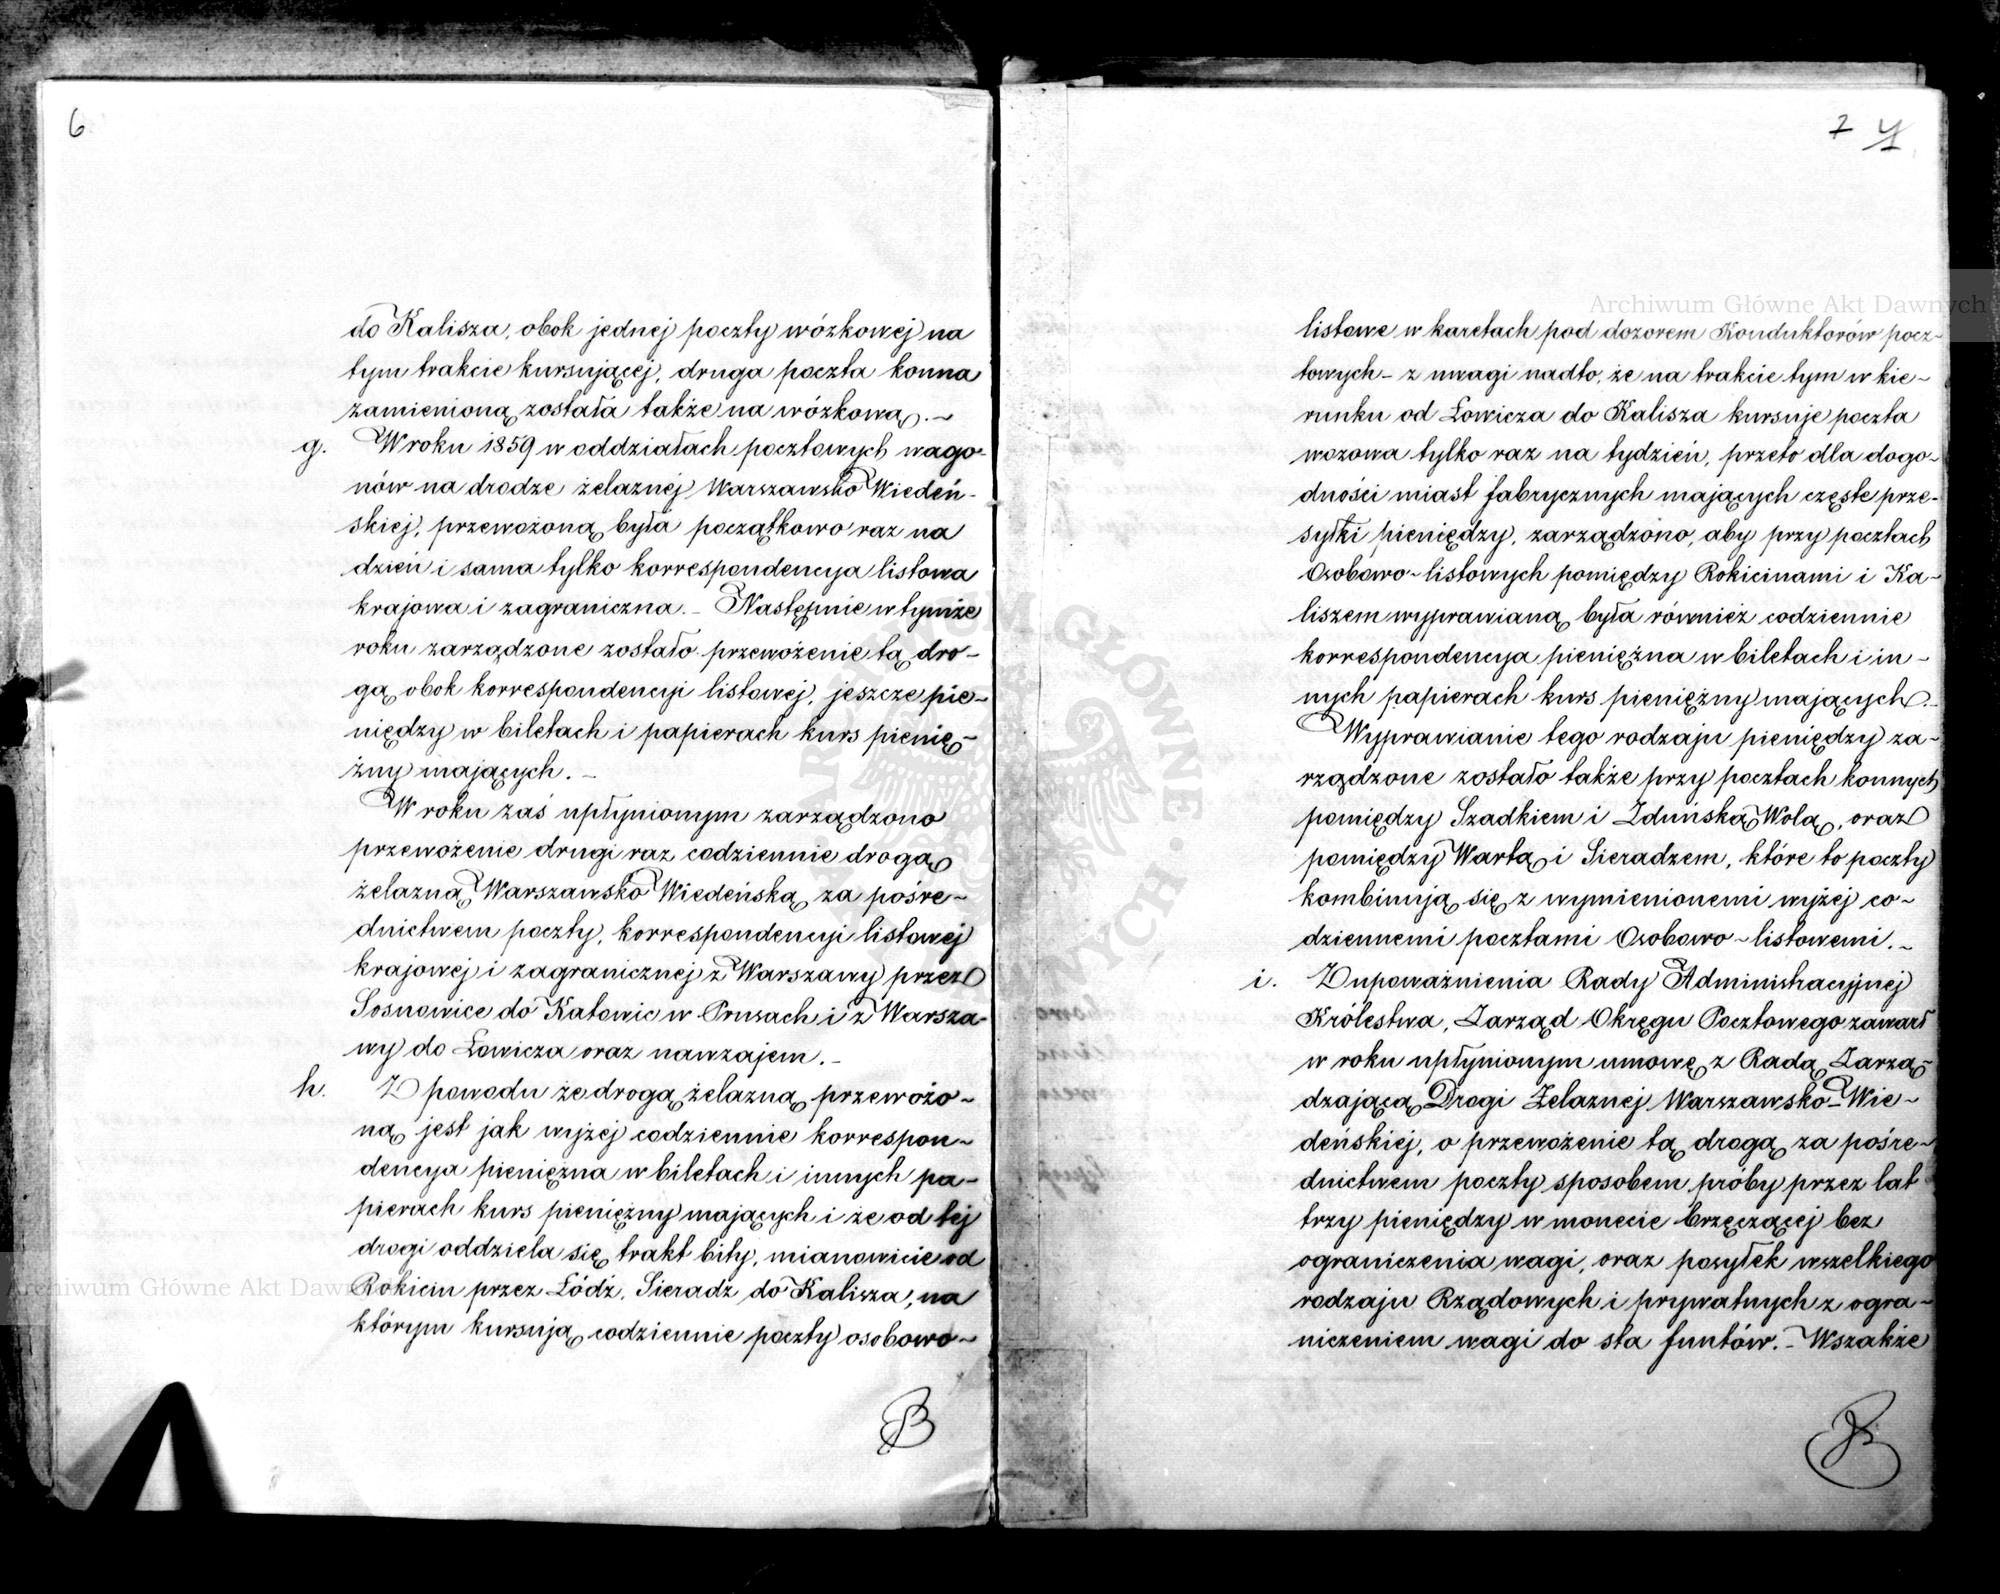 6
do Kalisza, obok jednej poczty wózkowej na
tym trakcie kursującej, druga poczta konna
zamienioną została także na wózkową. ~
g. W roku 1859 w oddziałach pocztowych wago-
nów na drodze żelaznej Warszawsko Wiedeń-
skiej, przewożoną była początkowo raz na
dzień i sama tylko korrespondencya listowa
krajowa i zagraniczna. – Następnie w tymże
roku zarządzone zostało przewożenie tą dro-
gą obok korrespondencyi listowej, jeszcze pie-
niędzy w biletach i papierach kurs pienię-
żny mających. –
W roku zaś upłynionym zarządzono
przewożenie drugi raz codziennie drogą
żelazną Warszawsko Wiedeńską za pośre-
dnictwem poczty, korrespondencyi listowej
krajowej i zagranicznej z Warszawy przez
Sosnowice do Katowic w Prusach i z Warsza-
wy do Łowicza oraz nawzajem. –
h. Z powodu że drogą żelazną przewożo-
ną jest jak wyżej codziennie korrespon-
dencya pieniężna w biletach i innych pa-
pierach kurs pieniężny mających i że od tej
drogi oddziela się trakt bity, mianowicie od
Rokicin przez Łódź, Sieradz do Kalisza, na
którym kursują codziennie poczty osobowo-
7
listowe w karetach pod dozorem Konduktorów pocz-
towych – z uwagi nadto, że na trakcie tym w kie-
runku od Łowicza do Kalisza kursuje poczta
wozowa tylko raz na tydzień, przeto dla dogo-
dności miast fabrycznych mających częste prze-
syłki pieniędzy, zarządzono, aby przy pocztach
Osobowo-listowych pomiędzy Rokicinami i Ka-
liszem wyprawianą była również codziennie
korrespondencya pieniężna w biletach i in-
nych papierach kurs pieniężny mających. –
Wyprawianie tego rodzaju pieniędzy za-
rządzone zostało także przy pocztach konnych
pomiędzy Szadkiem i Zduńską Wolą, oraz
pomiędzy Wartą i Sieradzem, które to poczty
kombinują się z wymienionemi wyżej co-
dziennemi pocztami Osobowo-listowemi. ~
i. Z upoważnienia Rady Administracyjnej
Królestwa, Zarząd Okręgu Pocztowego zawarł
w roku upłynionym umowę z Radą Zarzą-
dzającą Drogi Żelaznej Warszawsko-Wie-
deńskiej, o przewożenie tą drogą za pośre-
dnictwem poczty sposobem próby przez lat
trzy pieniędzy w monecie brzęczącej bez
ograniczenia wagi, oraz posyłek wszelkiego
rodzaju Rządowych i prywatnych z ogra-
niczeniem wagi do sta funtów. – Wszakże
Archiwum Główne Akt Dawnych
Archiwum Główne Akt Dawnych